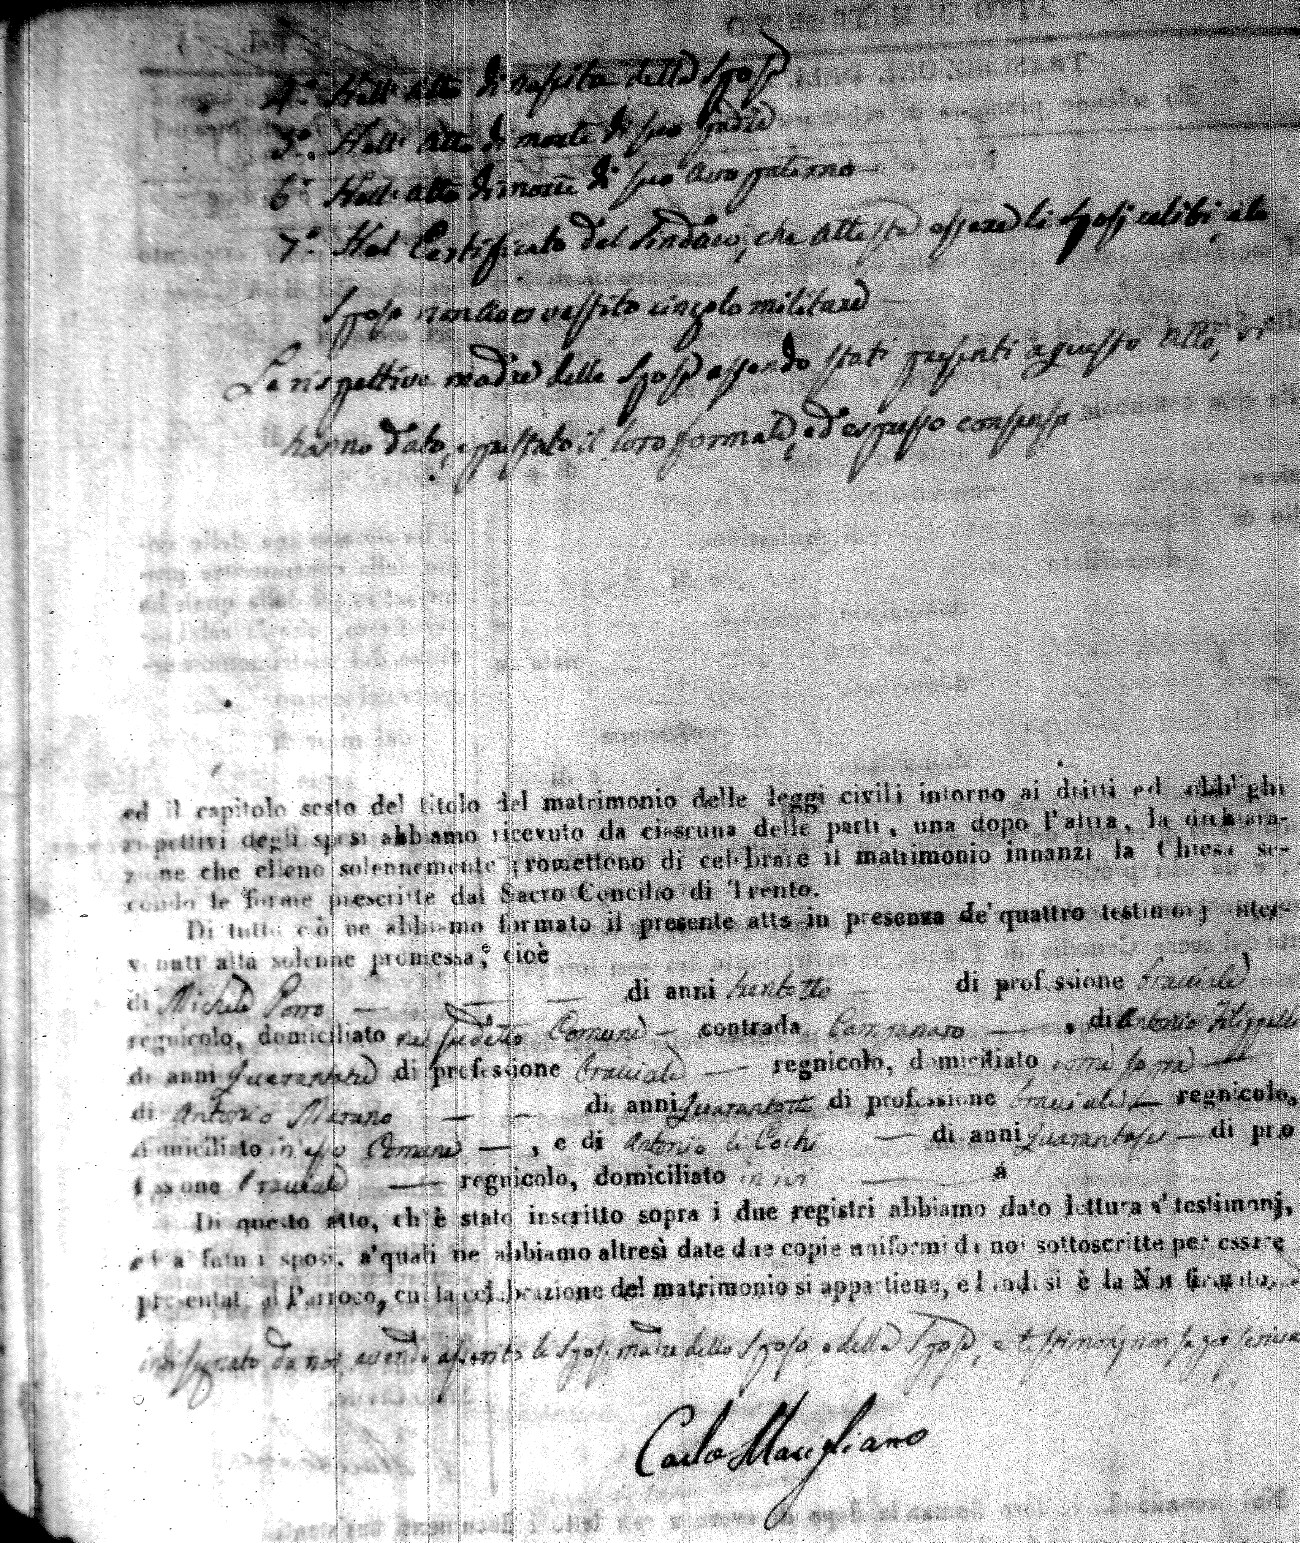 4.° Nell' atto di nascita della Sposa
5.° Nell' atto di morte di suo Padre
6.° Nell' atto di morte di suo avo paterno
7.° Nel Certificato del Sindaco, che attesta essere li Sposi celibi, e lo
Sposo non aver vestito cingolo militare
Le rispettive madri delli Sposi essendo stati presenti a questo atto, vi
hanno dato, e prestato il loro formale, ed espresso consenso
ed il capitolo sesto del titolo del matrimonio delle leggi civili intorno ai dritti ed obblighi
rispettivi degli sposi abbiamo ricevuto da ciascuna delle parti, una dopo l'altra, la dichiara-
zione che elleno solennemente promettono di celebrare il matrimonio innanzi la Chiesa se-
condo le forme prescritte dal Sacro Concilio di Trento.
Di tutto ciò ne abbiamo formato il presente atto in presenza de' quattro testimonj inter-
venuti alla solenne promessa, cioè
di Michele Porro di anni trentotto di professione bracciale
regnicolo, domiciliato nel sudetto Comune contrada Campanaro , di Antonio Filippelli
di anni quarantatre di professione bracciale regnicolo, domiciliato come sopra
di Antonio Marano di anni quarantotto di professione bracciale regnicolo,
domiciliato in esso Comune , e di Antonio di di anni quarantasei di pro
fessione bracciale regnicolo, domiciliato ivi
Di questo atto, ch'è stato inscritto sopra i due registri abbiamo dato lettura a' testimonj,
ed a' futuri sposi, a' quali ne abbiamo altresì date due copie uniformi da noi sottoscritte per essere
presentate al Parroco, cui la celebrazione del matrimonio si appartiene, e
da noi, avendo asserito li Sposi, madre dello Sposo, e della Sposa, e testimonj non saper scrivere
Carlo Marigliano